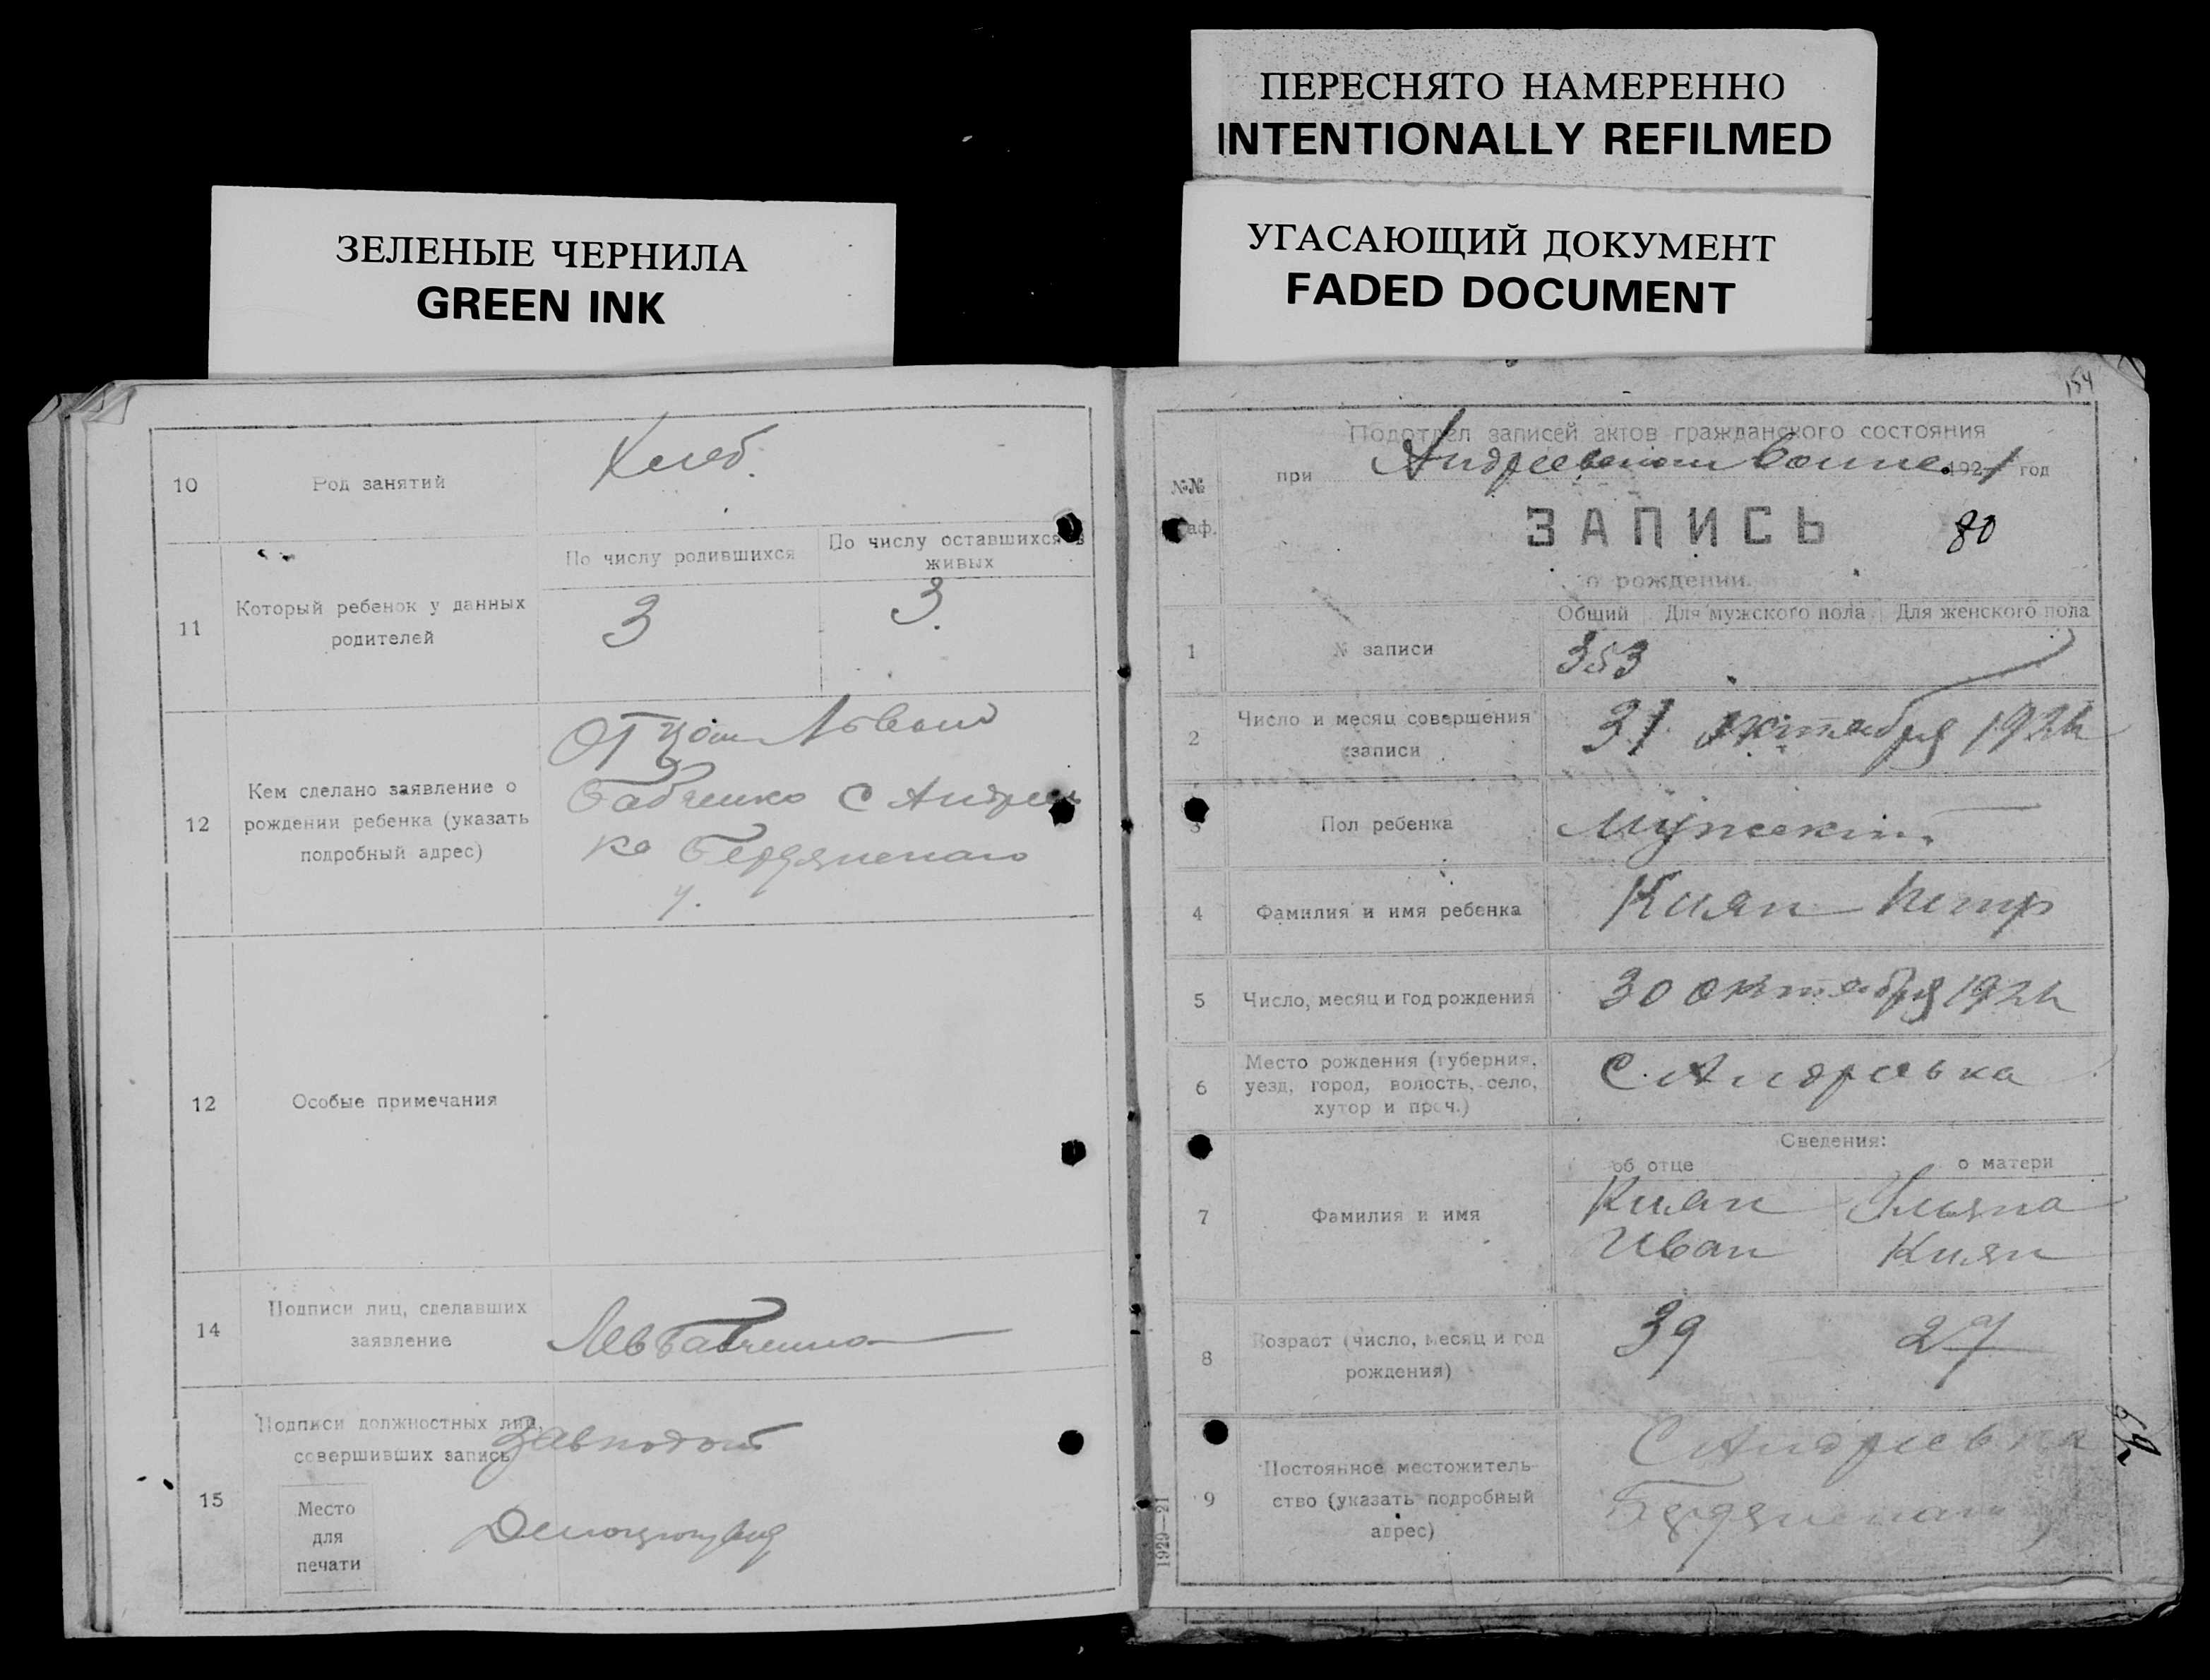 ПЕРЕСНЯТО НАМЕРЕННО
INTENTIONALLY REFILMED
ЗЕЛЕНЫЕ ЧЕРНИЛА
GREEN INK
УГАСАЮЩИЙ ДОКУМЕНТ
FADED DOCUMENT
10
Род занятий
Хлеб.
11
Который ребенок у данных
родителей
По числу родившихся
По числу оставшихся в
живых
3
3.
12
Кем сделано заявление о
рождении ребенка (указать
подробный адрес)
Отцом Львом
Бабченко С Андреев
ка Бердянскаго
у.
12
Особые примечания
14
Подписи лиц, сделавших
заявление
Лев Бабченко
15
Подписи должностных лиц,
совершивших запись
Завподот
Место
для
печати
154
Подотдел записей актов гражданского состояния
при Андреевском Волисп. 1921 год
№№
аф.
ЗАПИСЬ
80
о рождении.
Общий Для мужского пола Для женского пола
1
№ записи
353
2
Число и месяц совершения
записи
31 октября 1921
3
Пол ребенка
Мужский
4
Фамилия и имя ребенка
Киян Петр
5
Число, месяц и год рождения
30 октября 1921
6
Место рождения (губерния,
уезд, город, волость, село,
хутор и проч.)
С. Андреевка
Сведения:
об отце
о матери
7
Фамилия и имя
Киян
Иван
Ульяна
Киян
8
Возраст (число, месяц и год
рождения)
39
27
9
Постоянное местожитель-
ство (указать подробный
адрес)
С Андреевка
Бердянскаго у
1929—21
69